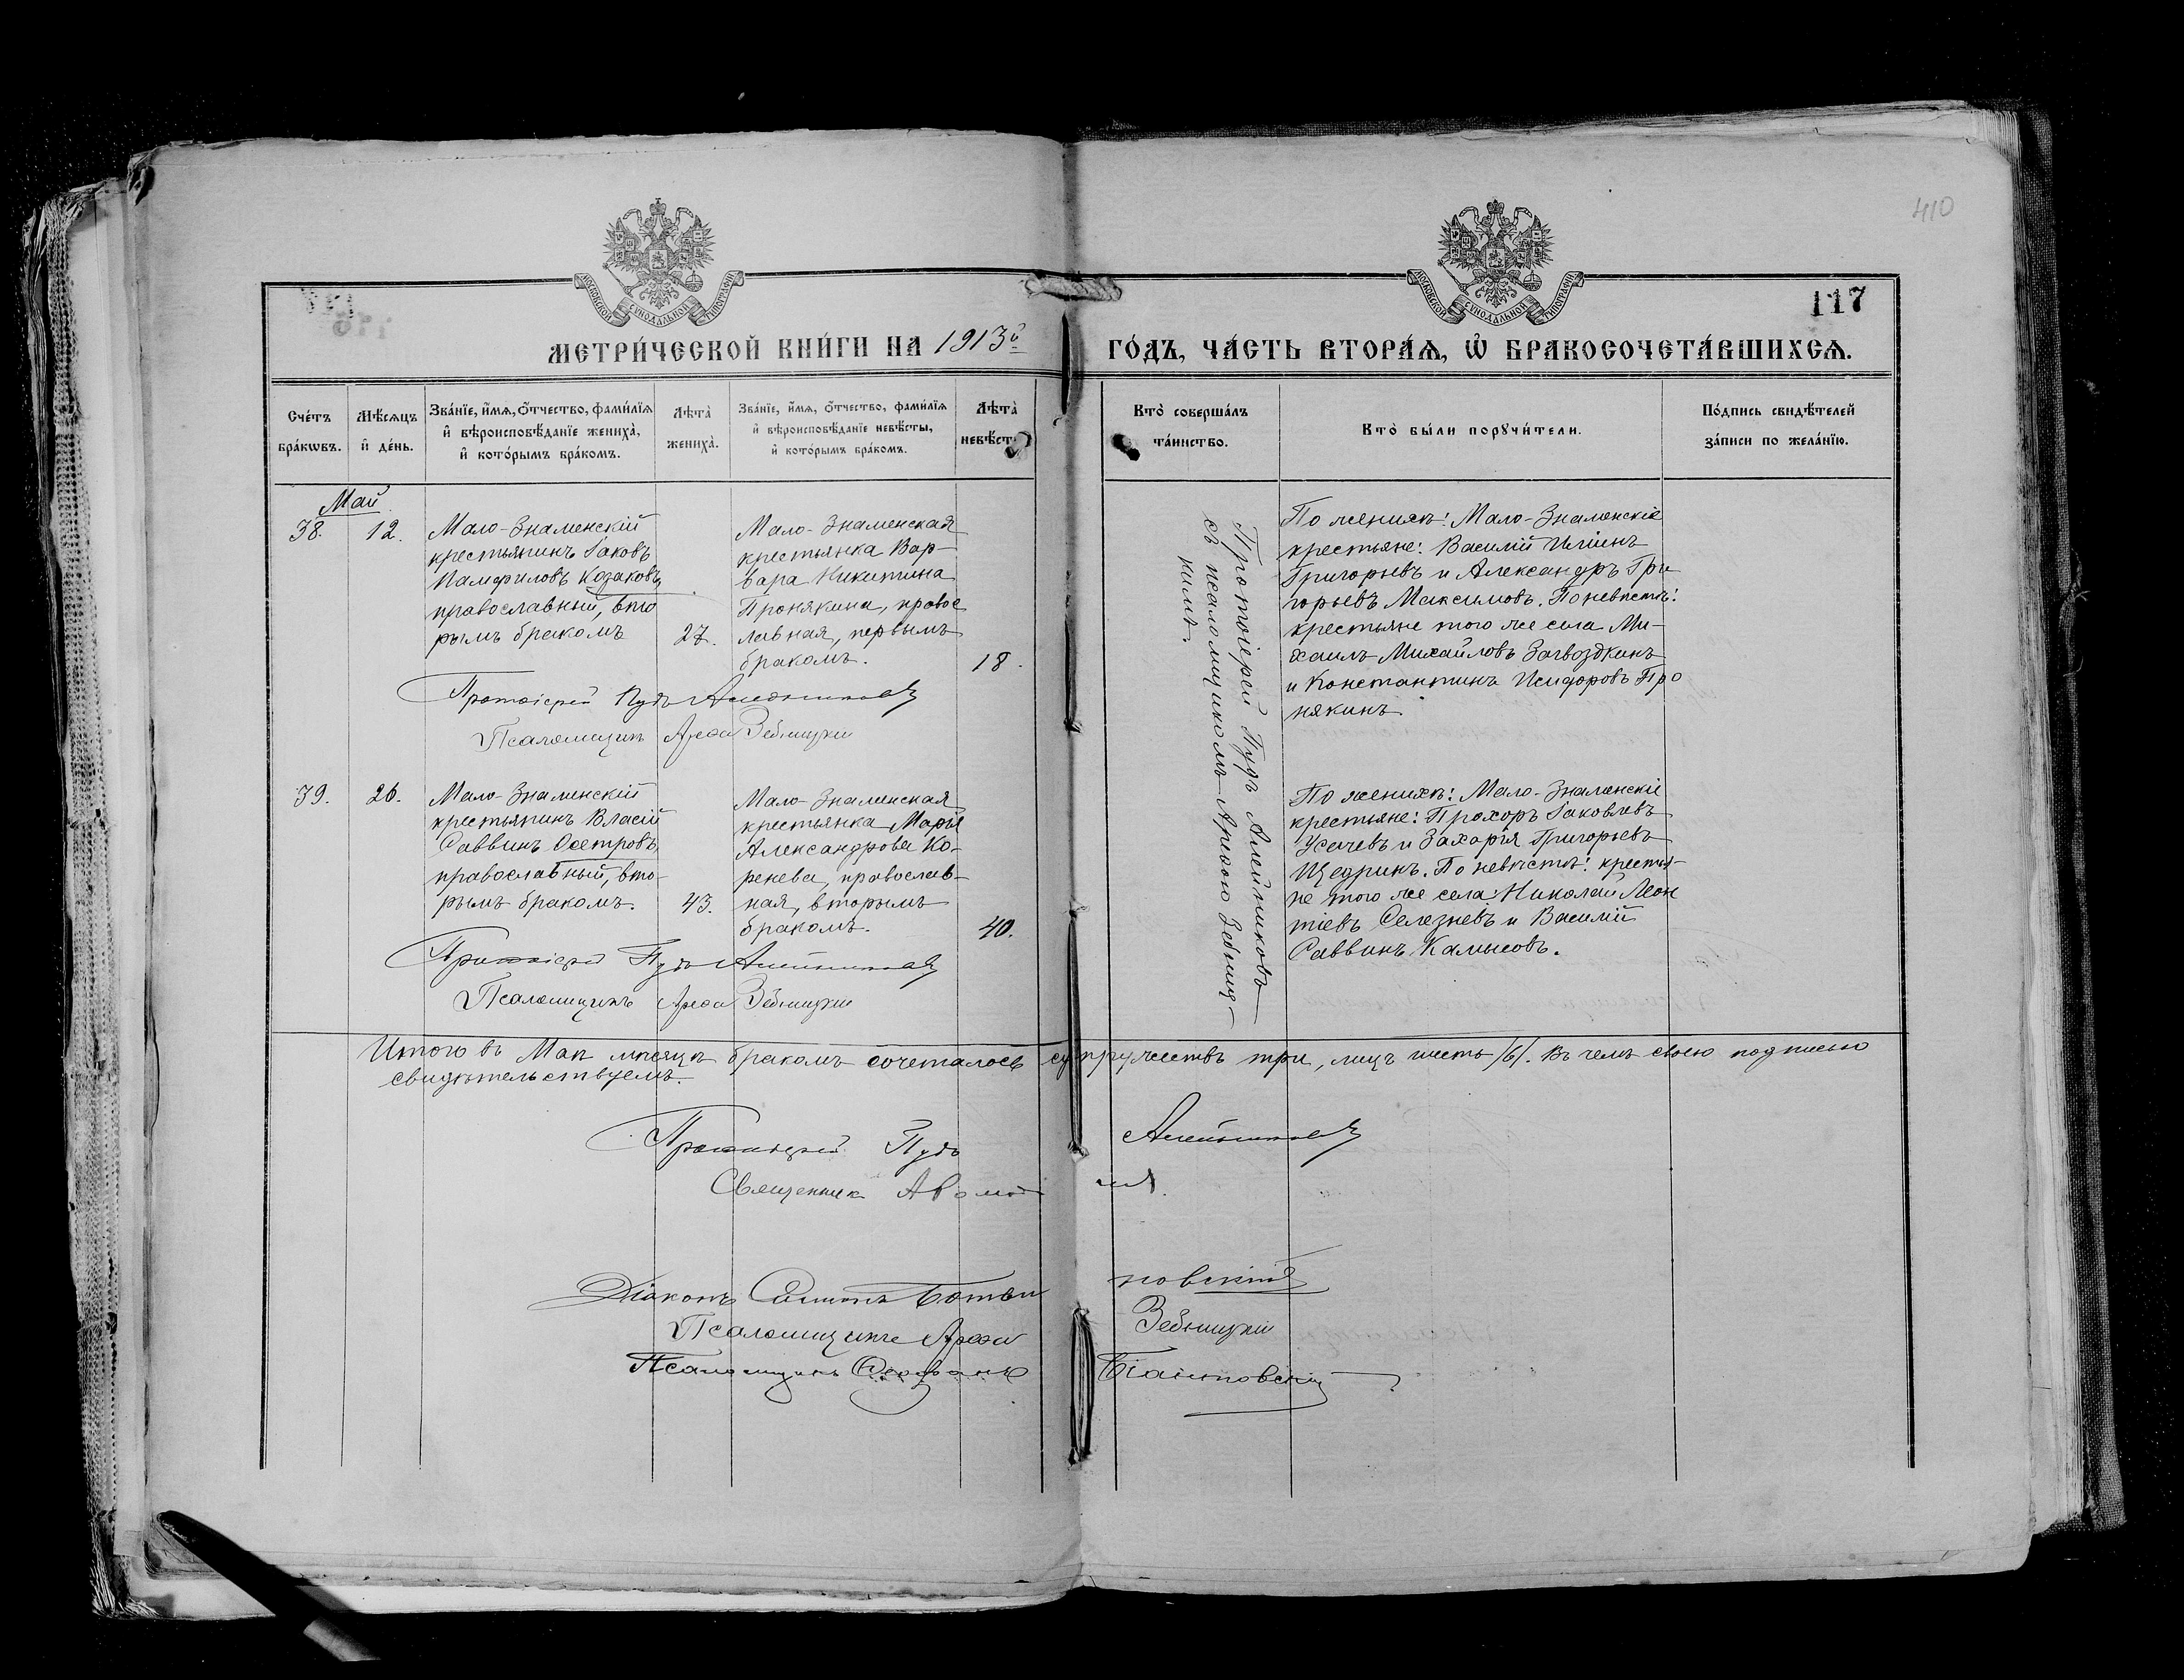 410
117
МОСКОВСКОЙ СѴНОДАЛЬНОЙ ТИПОГРАФІИ
МОСКОВСКОЙ СѴНОДАЛЬНОЙ ТИПОГРАФІИ
МЕТРИ́ЧЕСКОЙ КНИ́ГИ НА 1913й ГО́ДЪ, ЧА́СТЬ ВТОРА́Ѧ, Ѽ БРАКОСОЧЕТА́ВШИХСѦ.
Сче́тъ бра́кѡвъ.
Мѣ́сѧцъ и҆ де́нь.
Зва́нїе, и҆́мѧ, ѻ҆́тчество, фами́лїѧ
и҆ вѣроисповѣ́данїе жениха̀,
и҆ кото́рымъ бра́комъ.
Лѣта̀ жениха̀.
Зва́нїе, и҆́мѧ, ѻ҆́тчество, фами́лїѧ
и҆ вѣроисповѣ́данїе невѣ́сты,
и҆ кото́рымъ бра́комъ.
Лѣта̀ невѣ́сты
Кто̀ соверша́лъ
та́инство.
Кто̀ бы́ли порꙋчи́тели.
По́дпись свидѣ́телей
за́писи по жела́нїю.
Май
38.
12.
Мало-Знаменскій
крестьянинъ Іаковъ
Памфиловъ Козаковъ,
православный, вто
рымъ бракомъ
27.
Мало-Знаменская
крестьянка Вар-
вара Никитина
Пронякина, правос
лавная, первымъ
бракомъ.
18.
Протоіерей Пудъ Алейниковъ
съ псаломщикомъ Арефою Зебниц-
кимъ.
По женихѣ: Мало-Знаменскіе
крестьяне: Василій Ильинъ
Григорьевъ и Александръ Гри
горьевъ Максимовъ. По невѣстѣ:
крестьяне того же села Ми-
хаилъ Михайловъ Загвоздкинъ
и Константинъ Исидоровъ Про
някинъ.
Протоіерей Пудъ Алейниковъ
Псаломщикъ Арефа Зебницкій
39.
26.
Мало-Знаменскій
крестьянинъ Власій
Саввинъ Осетровъ,
православный, вто-
рымъ бракомъ.
43.
Мало-Знаменская
крестьянка Марія
Александрова Ко-
ренева, православ-
ная, вторымъ
бракомъ.
40.
По женихѣ: Мало-Знаменскіе
крестьяне: Прохоръ Іаковлевъ
Усачевъ и Захарія Григорьевъ
Щедринъ. По невѣстѣ: крестья-
не того же села: Николай Леон
тіевъ Селезневъ и Василій
Саввинъ Камысовъ.
Протоіерей Пудъ Алейниковъ
Псаломщикъ Арефа Зебницкій
Итого въ Маѣ мѣсяцѣ бракомъ сочеталось супружествъ три, лицъ шесть /6/. Въ чемъ своею подписью
свидѣтельствуемъ.
Протоіерей Пудъ Алейниковъ
Священник
Діаконъ
новскій
Псаломщикъ Арефа Зебницкій
Псаломщикъ